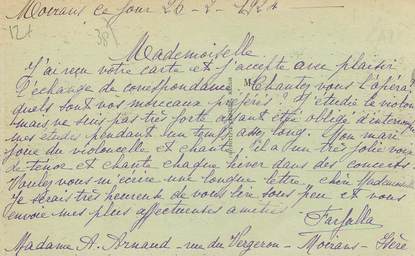 Moirans ce jour 26-2-1924
12f
38f
Mademoiselle
J'ai reçu votre carte et j'accepte avec plaisir
l'échange de correspondance. Chantez vous l'opéra,
quels sont vos morceaux préférés ? J'étudie le violon
mais ne suis pas très forte ayant été obligé d'interrompre
mes études pendant un temps assez long. Mon mari
joue du violoncelle et chante, il a une très jolie voix
de tenor et chante chaque hiver dans des concerts.
Voulez vous m'écrire une longue lettre, chère Mademoiselle
Je serais très heureuse de vous lire sous peu et vous
envoie mes plus affectueuses amitiés
Farfalla
Madame A. Arnaud - rue du Vergeron - Moirans - Isère